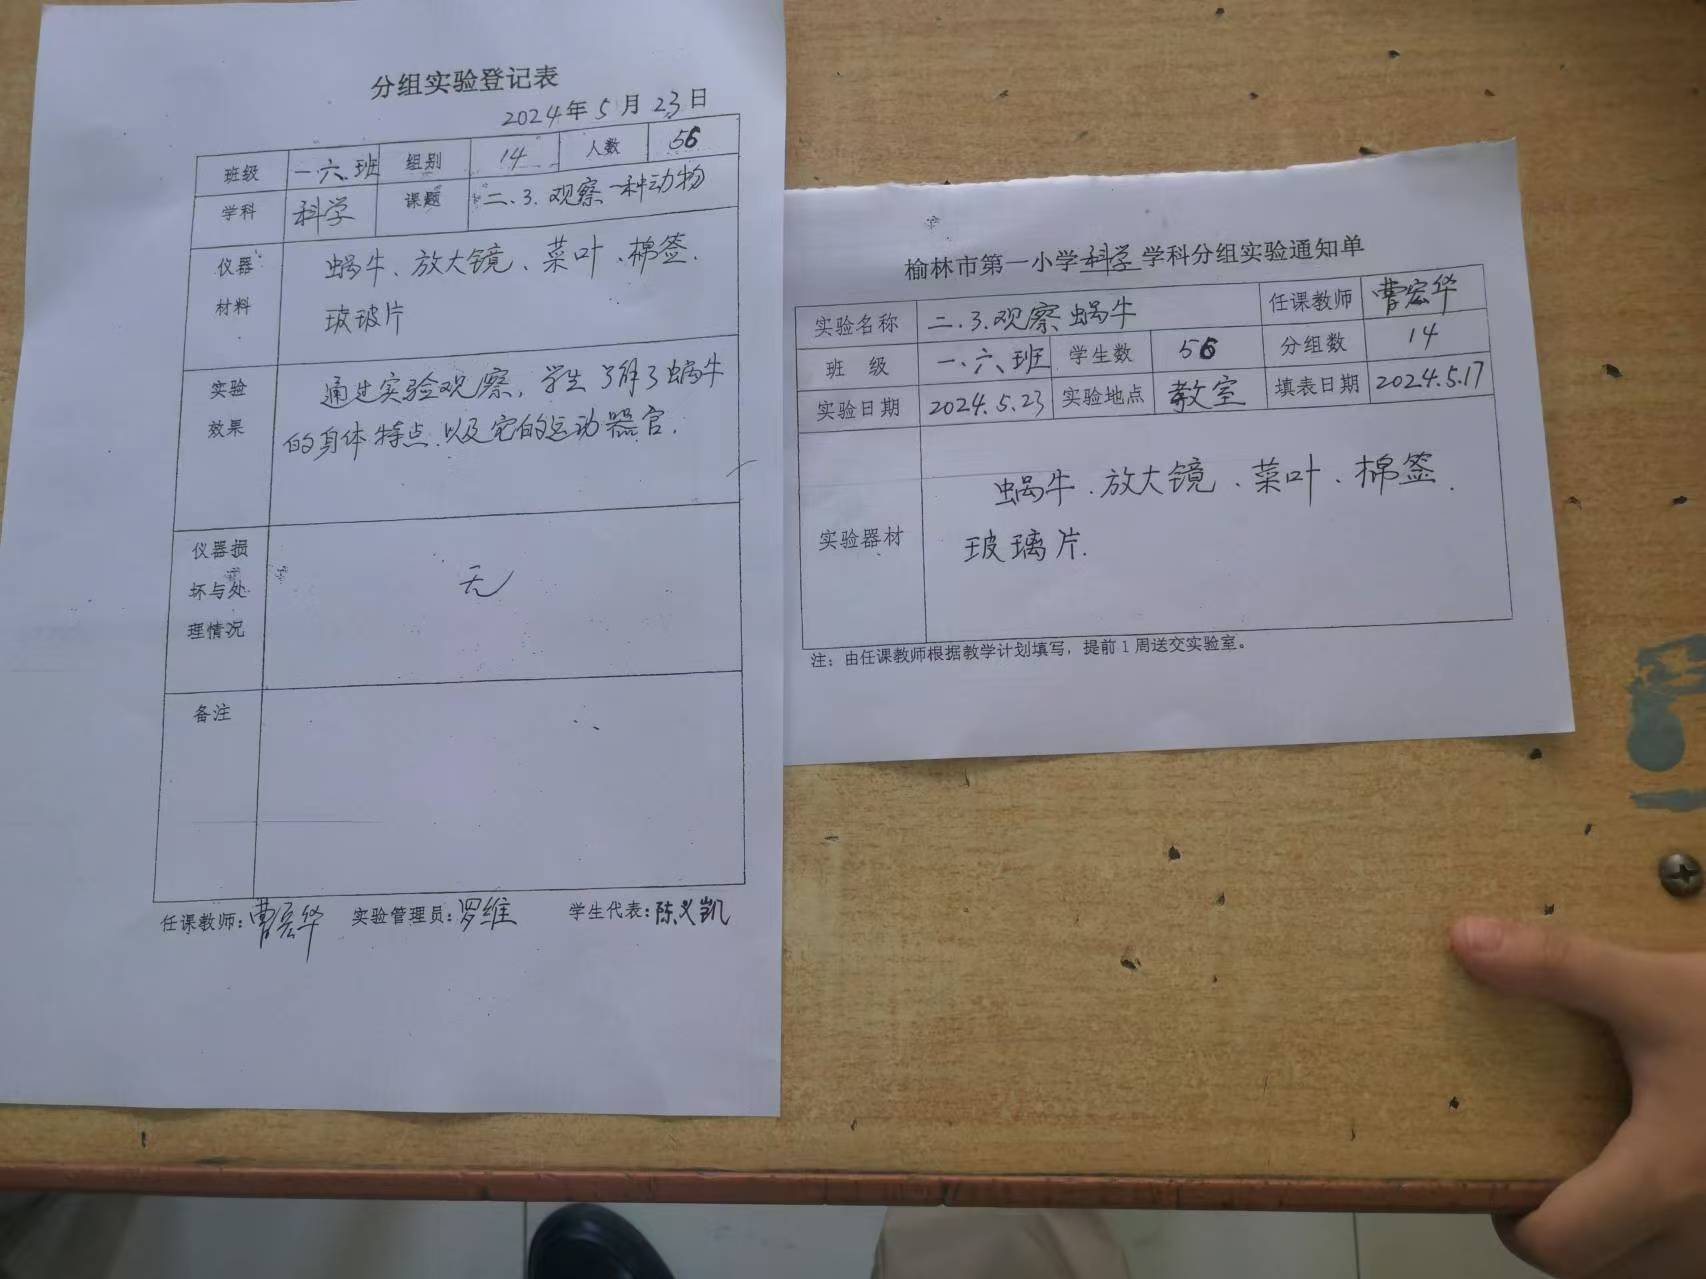 分组实验登记表
2024年5月23日
班级 一.六.班 组别 14 人数 56
学科 科学 课题 二.3.观察一种动物
仪器材料 蜗牛、放大镜、菜叶、棉签.
玻玻片
实验效果 通过实验观察,学生了解了蜗牛
的身体特点.以及它的运动器官.
仪器损坏与处理情况 无
备注
任课教师:曹宏华 实验管理员:罗维 学生代表:陈义凯
榆林市第一小学科学学科分组实验通知单
实验名称 二.3.观察蜗牛 任课教师 曹宏华
班 级 一.六班 学生数 56 分组数 14
实验日期 2024.5.23 实验地点 教室 填表日期 2024.5.17
实验器材 蜗牛、放大镜、菜叶、棉签.
玻璃片.
注:由任课教师根据教学计划填写,提前1周送交实验室。